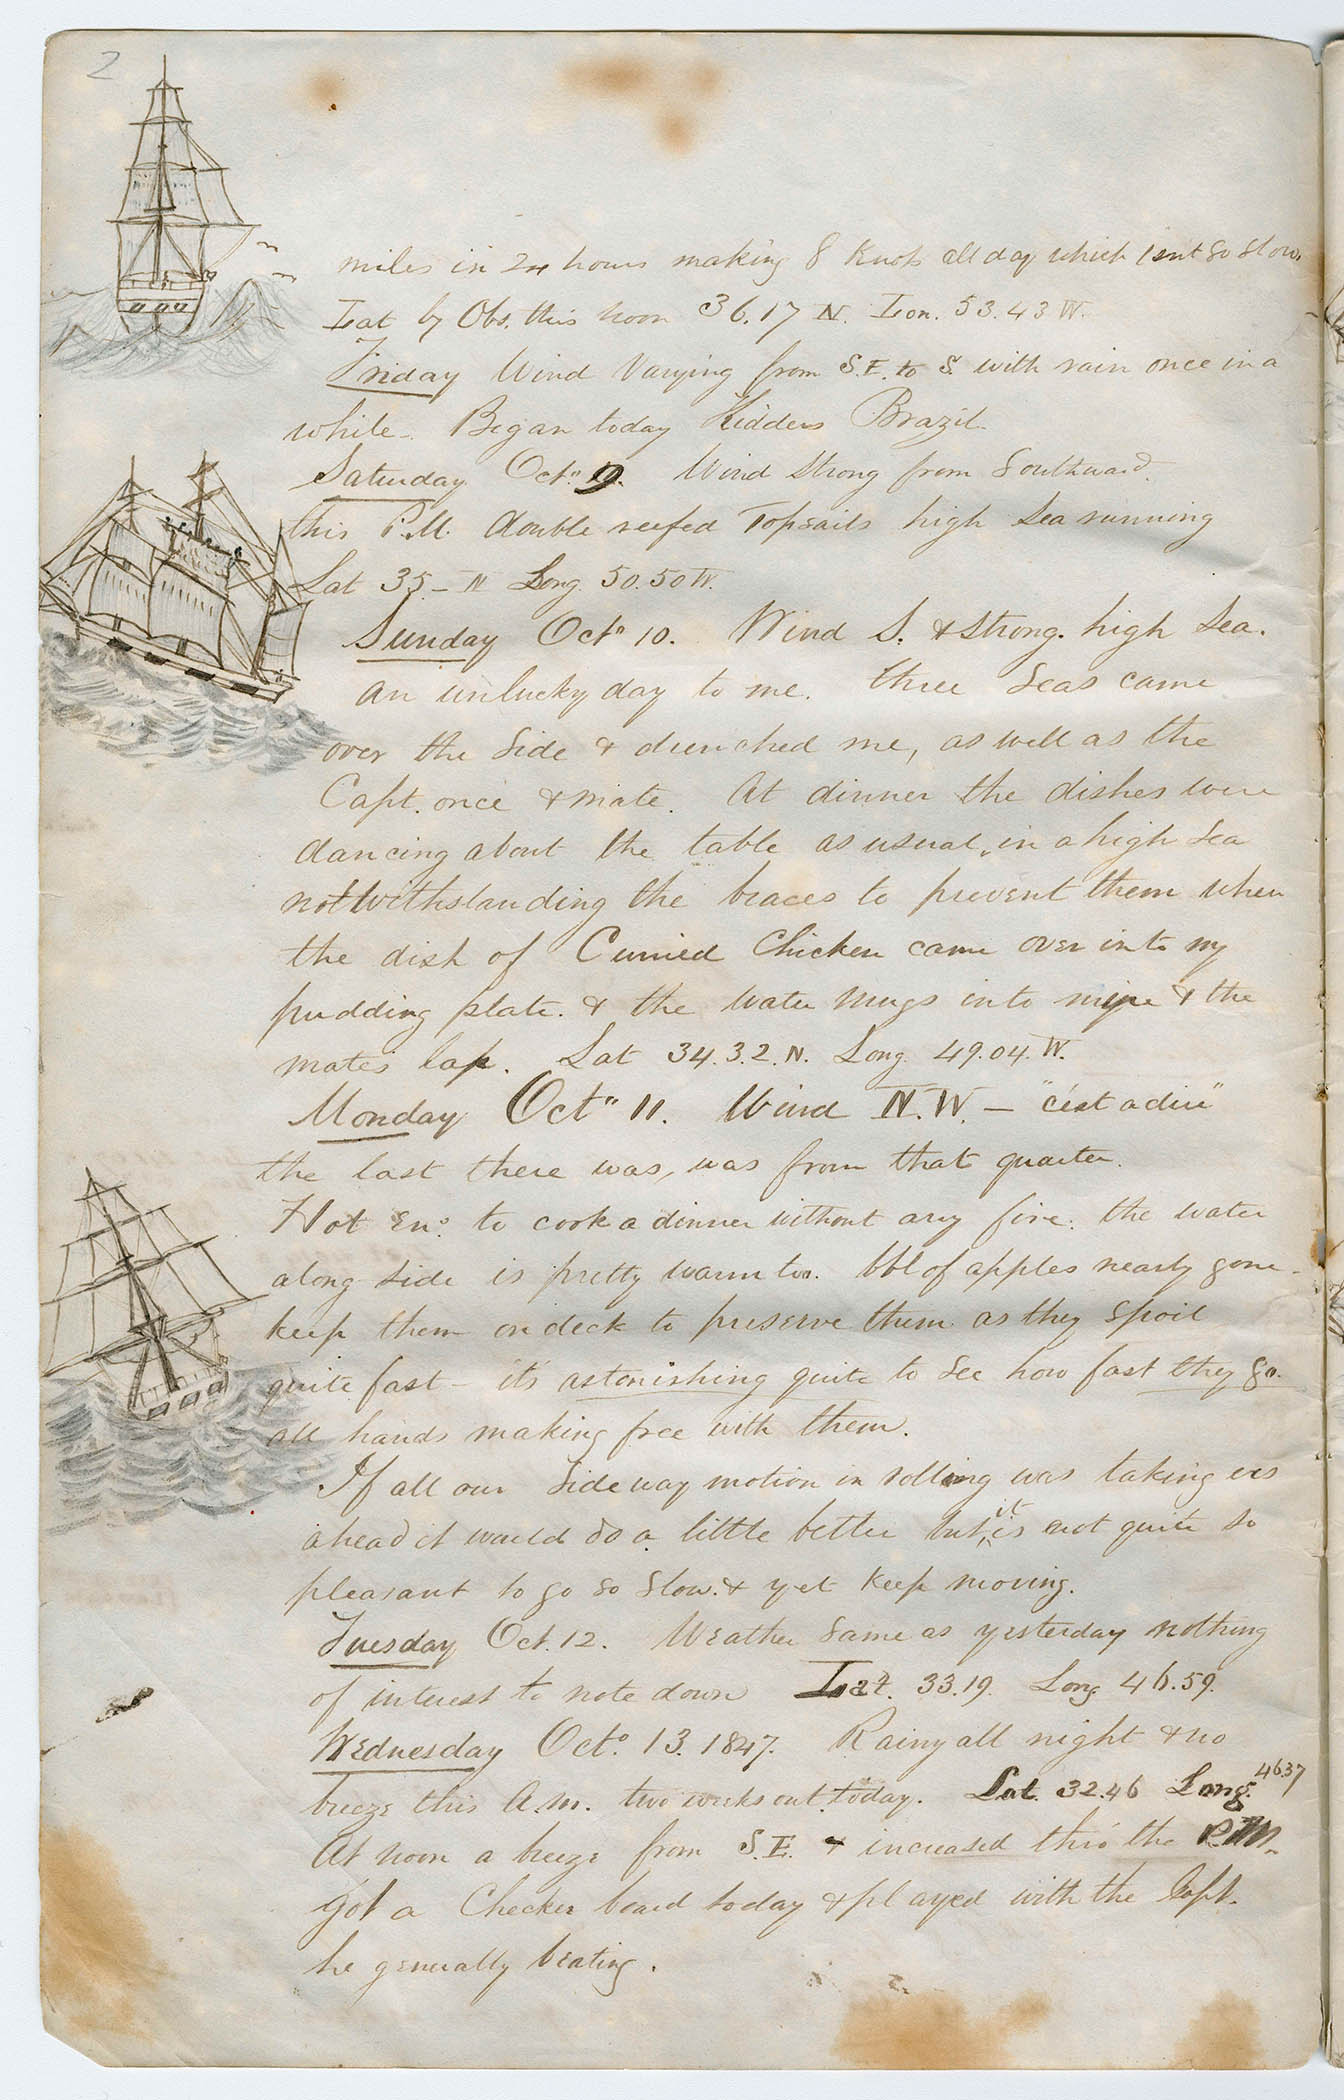 2
miles in 24 hours making 8 Knots all day which isnt so slow.
Lat by Obs. this noon 36.17 N. Lon. 53.43 W.
Friday Wind Varying from S.E. to S. with rain once in a
while. Began today Kidders Brazil.
Saturday Octn 9. Wind strong from Southward.
this P.M. double reefed Topsails high Sea running
Lat 35.– N Long. 50.50 W.
Sunday Octn 10. Wind S. & strong. high Sea.
an unlucky day to me. three Seas came
over the Side & drenched me, as well as the
Capt. once & mate. At dinner the dishes were
dancing about the table as usual, in a high Sea
notwithstanding the braces to prevent them when
the dish of Curried Chicken came over into my
pudding plate. & the water mugs into mine & the
mates lap. Lat 34.32. N. Long. 49.04. W.
Monday Octn 11. Wind N.W. — "c'est a dire"
the last there was, was from that quarter.
Hot Eno. to cook a dinner without any fire. the water
along side is pretty warm too. bbl of apples nearly gone –
keep them on deck to preserve them as they spoil
quite fast – it's astonishing quite to see how fast they go.
all hands making free with them.
If all our Sideway motion in rolling was taking us
ahead it would do a little better but it is not quite so
pleasant to go so slow. & yet keep moving.
Tuesday Oct. 12. Weather Same as yesterday nothing
of interest to note down Lat. 33.19. Long 46.59.
Wednesday Octo. 13. 1847. Rainy all night & no
breeze this A.M. two weeks out today. Lat. 32.46 Long. 46.37
At noon a breeze from S.E. & increased thro' the P.M.
got a Checker board today & played with the Capt.
he generally beating.